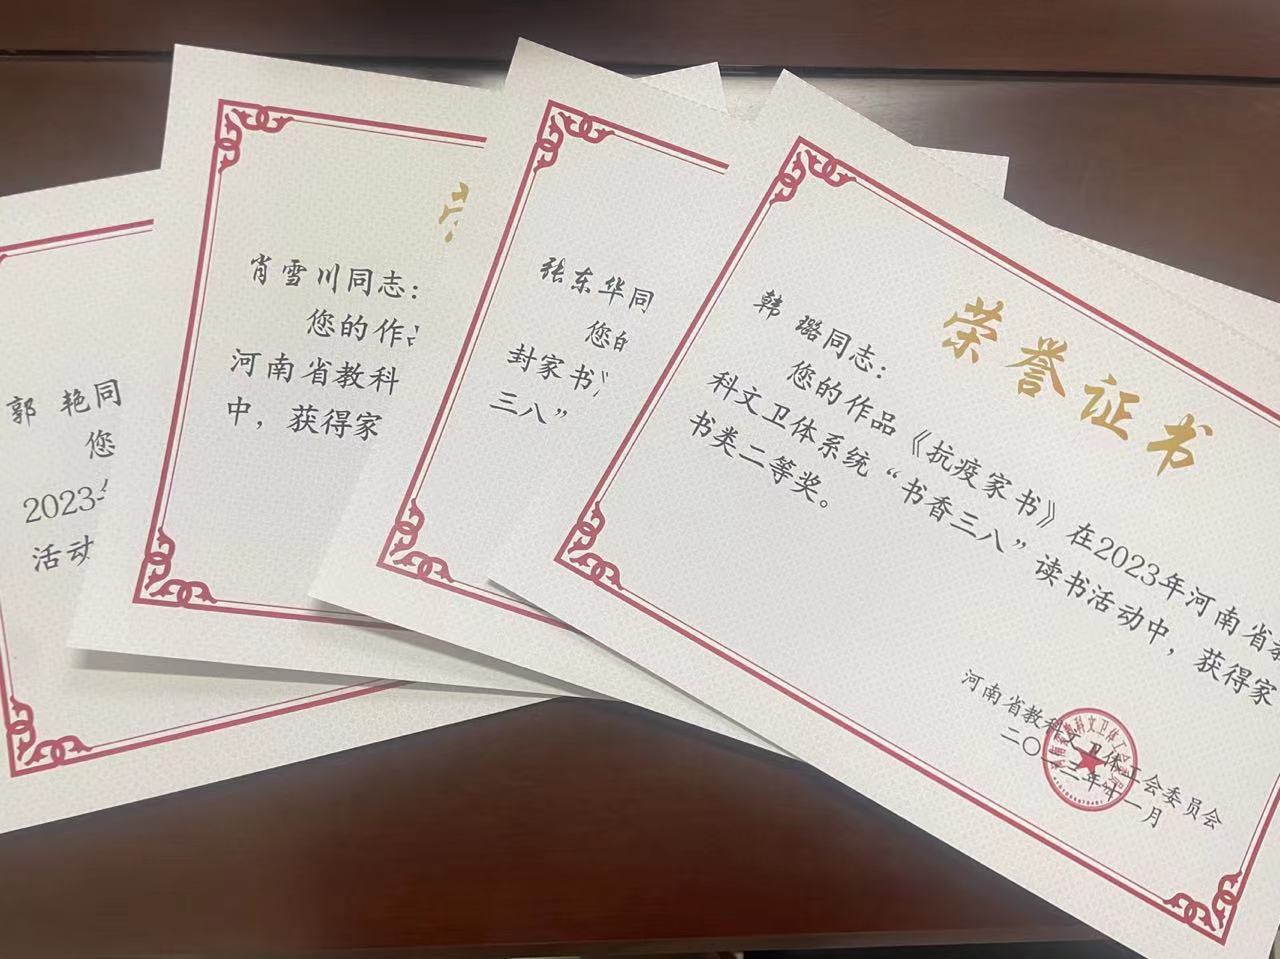 郭 艳同
您
2023年
活动
肖雪川同志：
您的作
河南省教科
中，获得家
张东华同
您的
封家书
三八”
荣誉证书
韩 璐同志：
您的作品《抗疫家书》在2023年河南省教
科文卫体系统“书香三八”读书活动中，获得家
书类二等奖。
河南省教科文卫体工会委员会
二〇二三年十一月